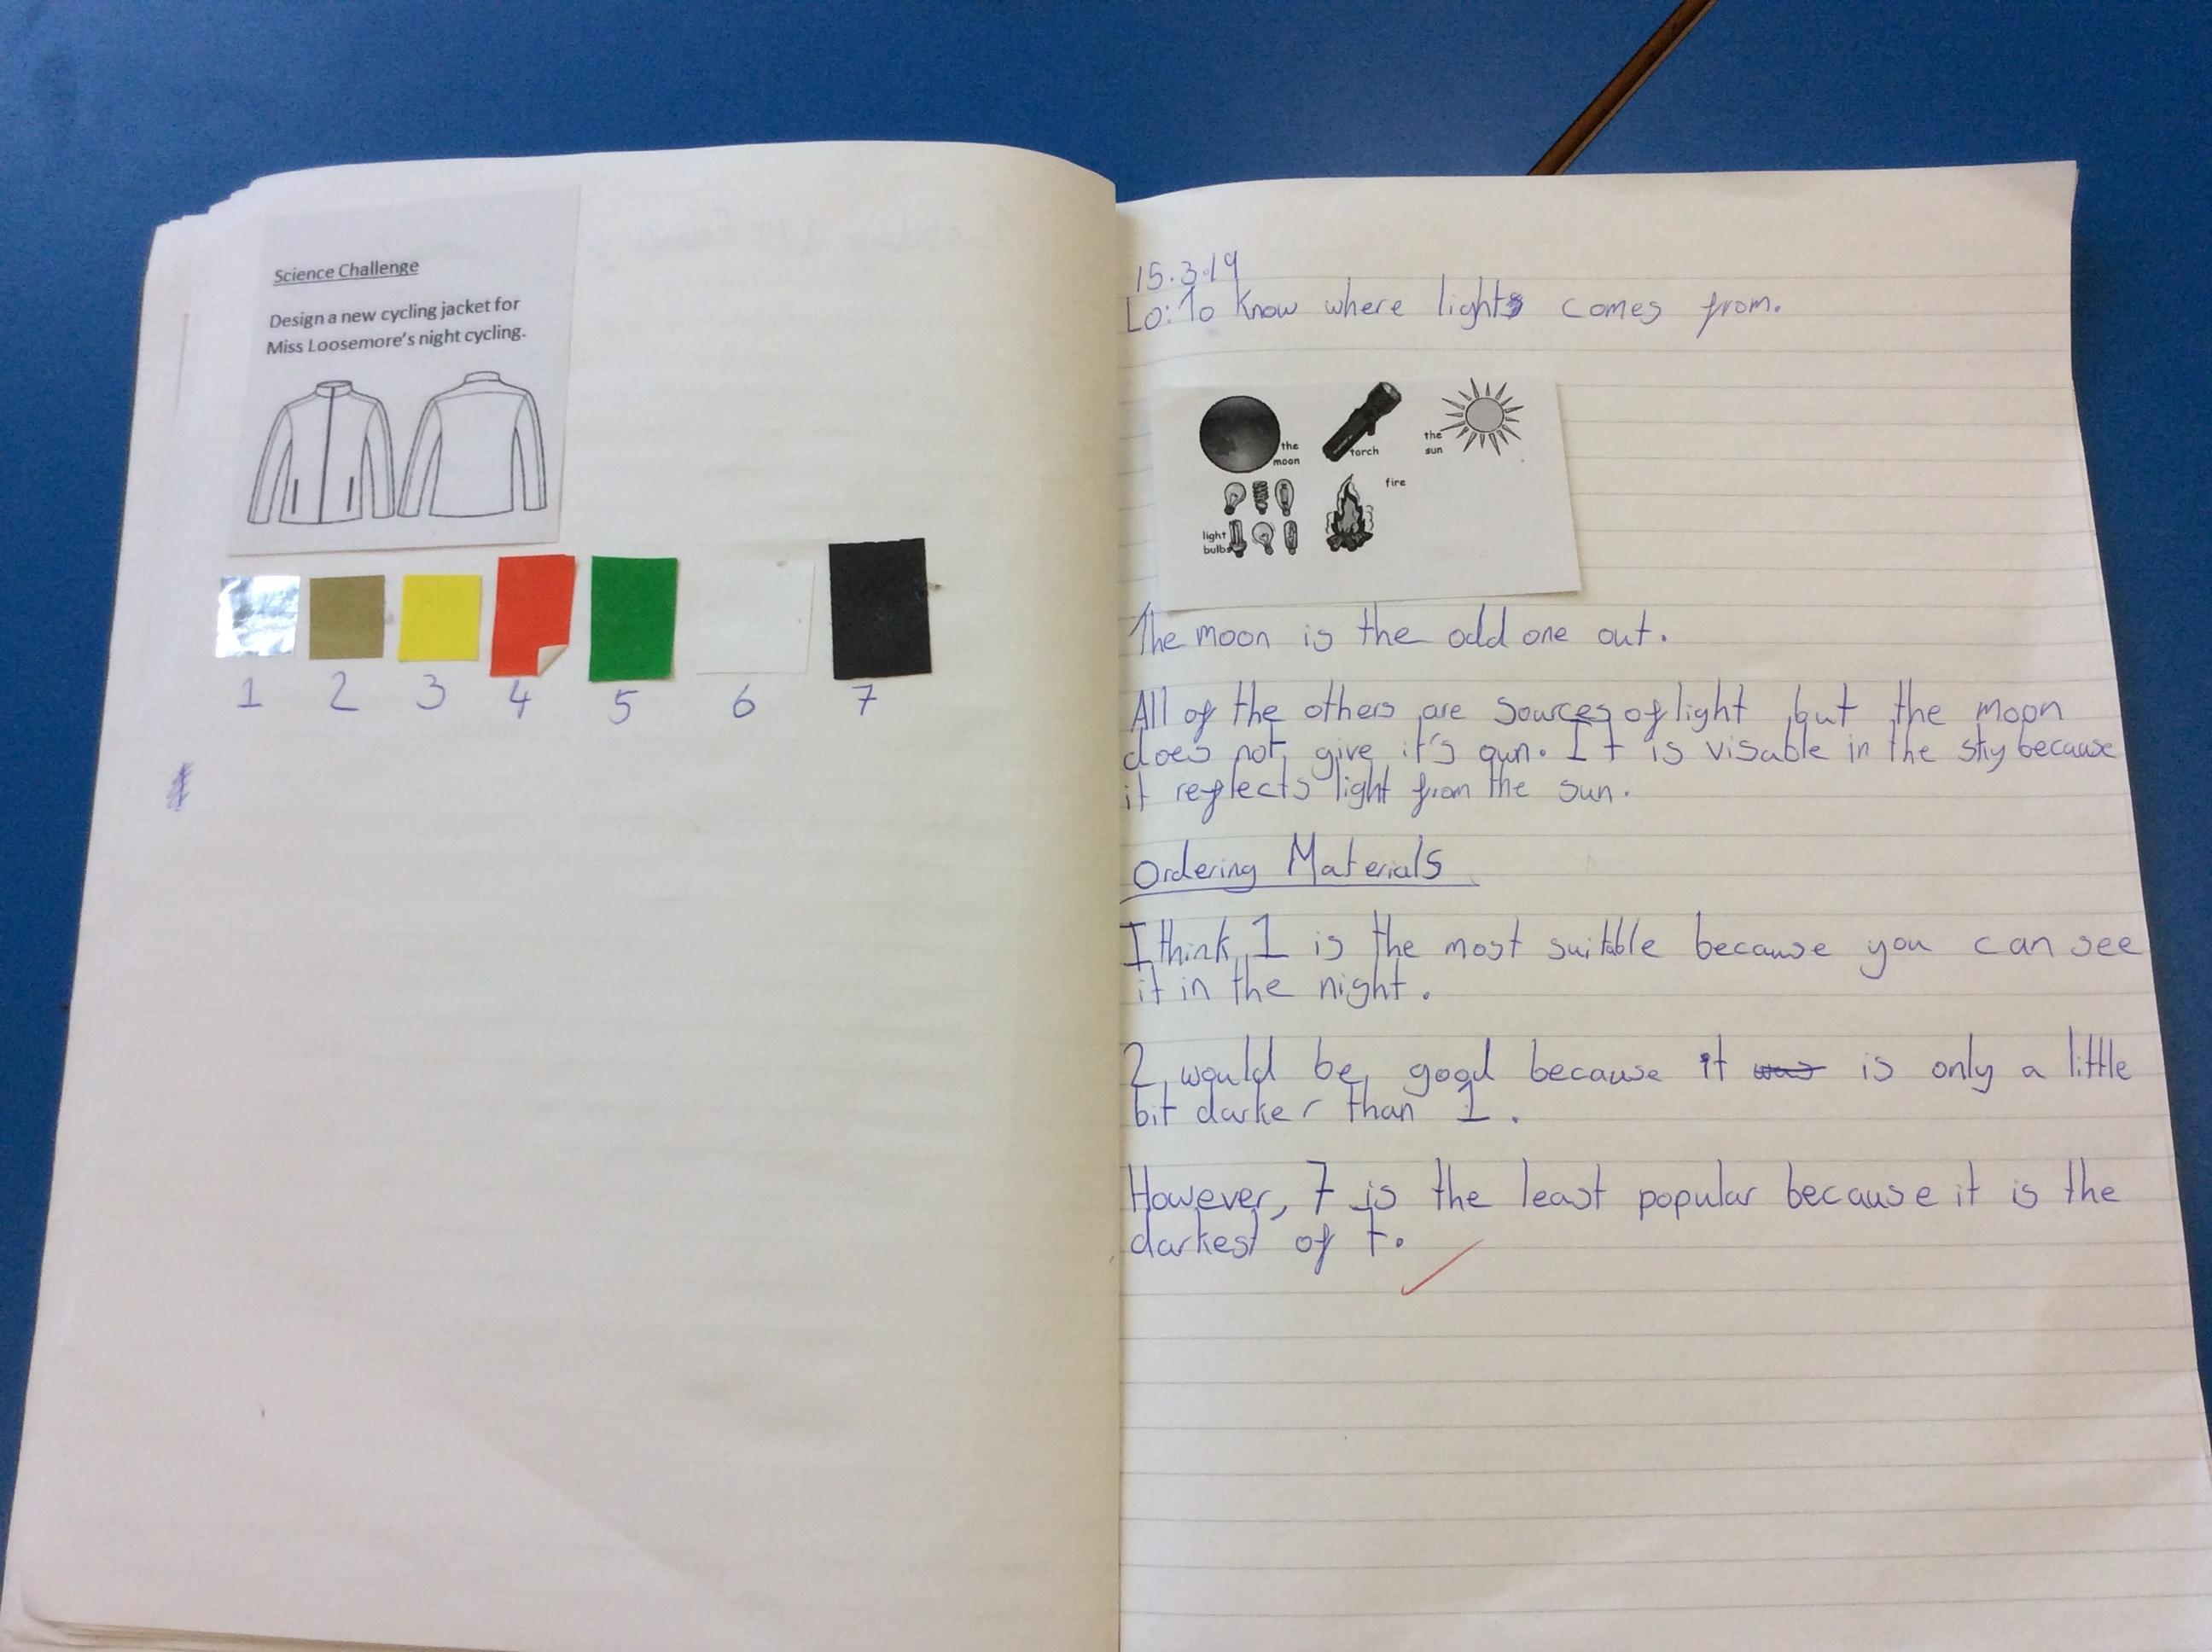 Science Challenge
Design a new cycling jacket for
Miss Loosemore's night cycling.
1 2 3 4 5 6 7
15.3.19
Lo: To know where light comes from.
the
moon
torch
the
sun
light
bulbs
fire
The moon is the odd one out.
All of the others are sources of light but the moon
does not give it's own. It is visable in the sky because
it reflects light from the sun.
Ordering Materials
I think 1 is the most suitable because you can see
it in the night.
2 would be good because it was is only a little
bit darker than 1.
However, 7 is the least popular because it is the
darkest of 7.